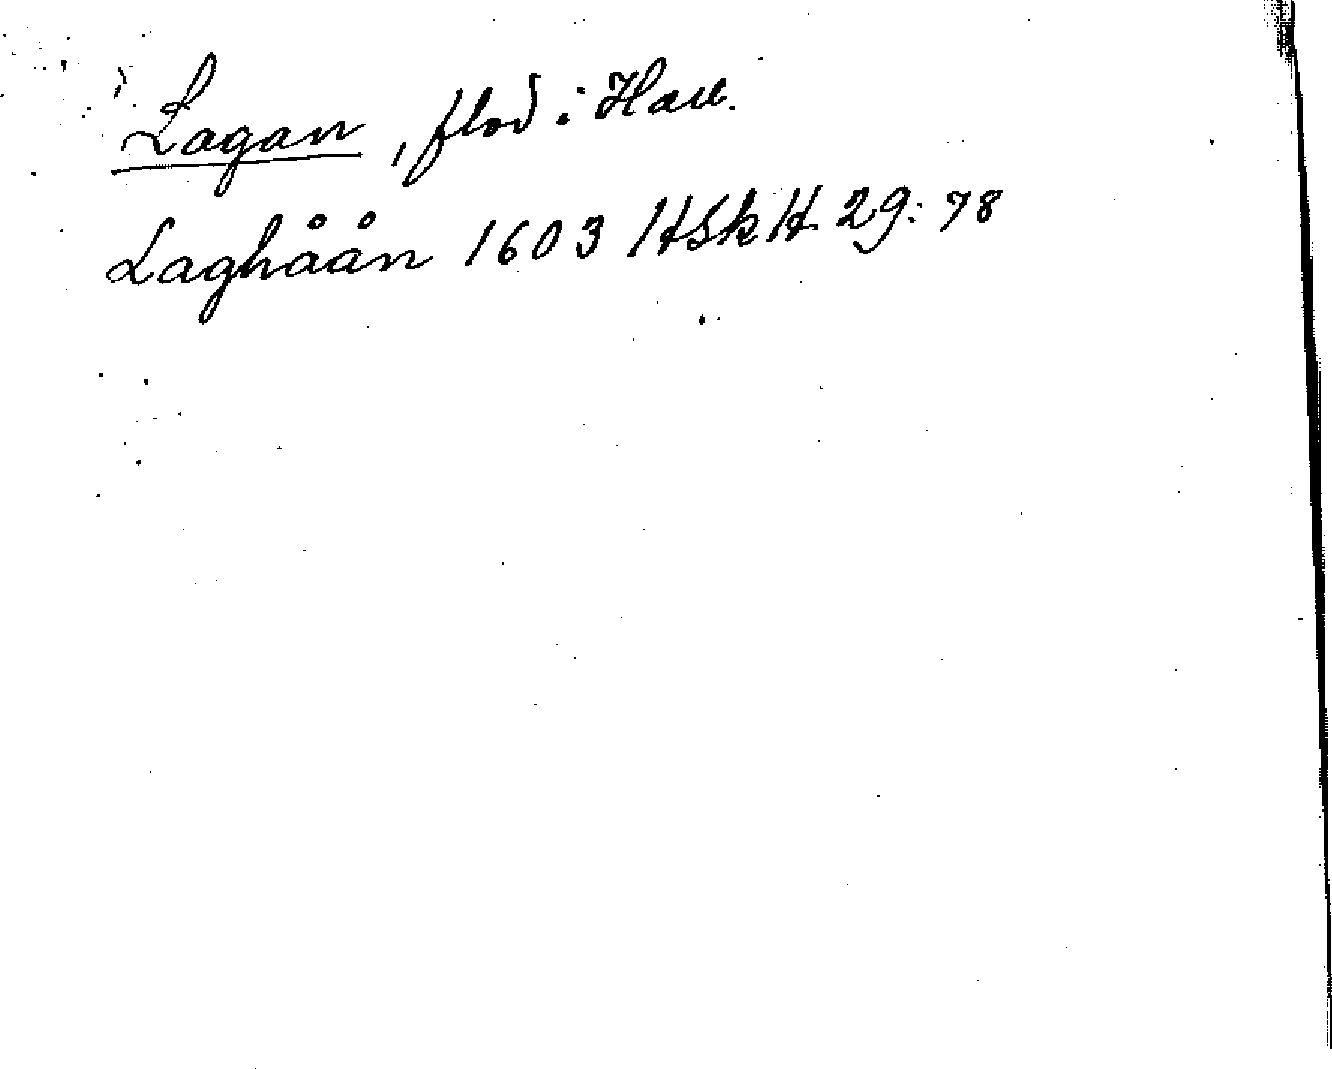 Lagan, flod i Hall.
Laghåån 1603 HSkH 29:78